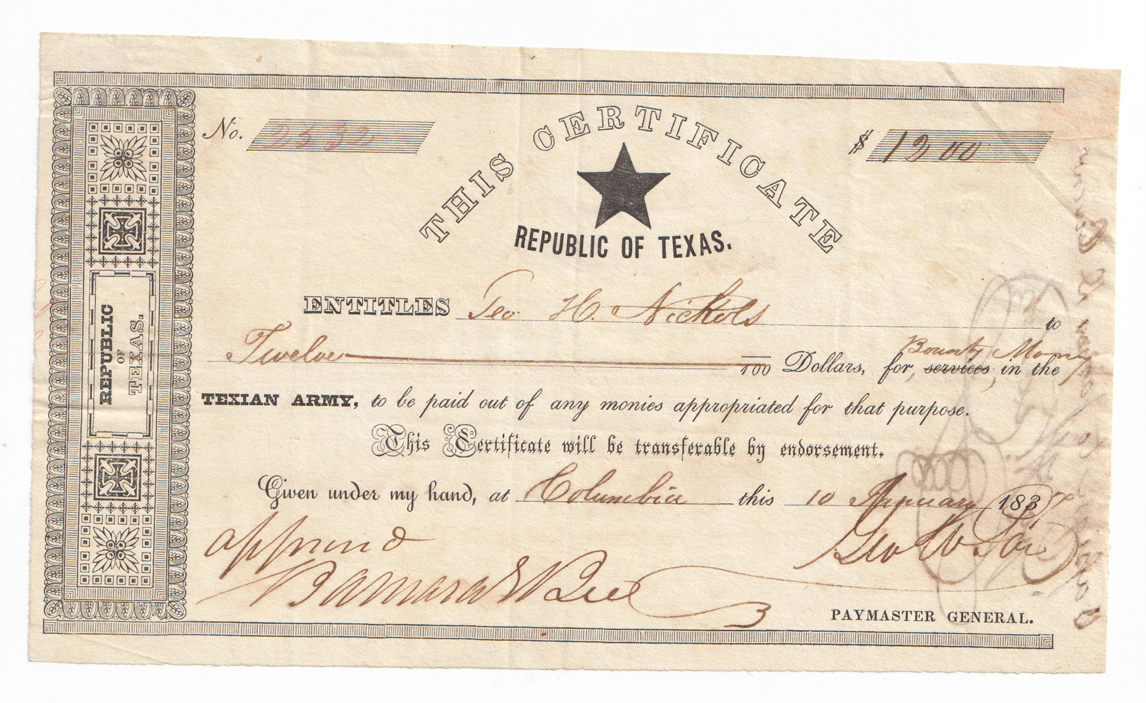 No. 2532
$ 12 00
THIS CERTIFICATE
REPUBLIC OF TEXAS.
REPUBLIC
OF
TEXAS.
ENTITLES Geo. H. Nickols to
Twelve /100 Dollars, for services Bounty Money in the
TEXIAN ARMY, to be paid out of any monies appropriated for that purpose.
This Certificate will be transferable by endorsement.
Given under my hand, at Columbia this 10 January 1837
approved
Barnard E Bee
Geo W Poe
PAYMASTER GENERAL.